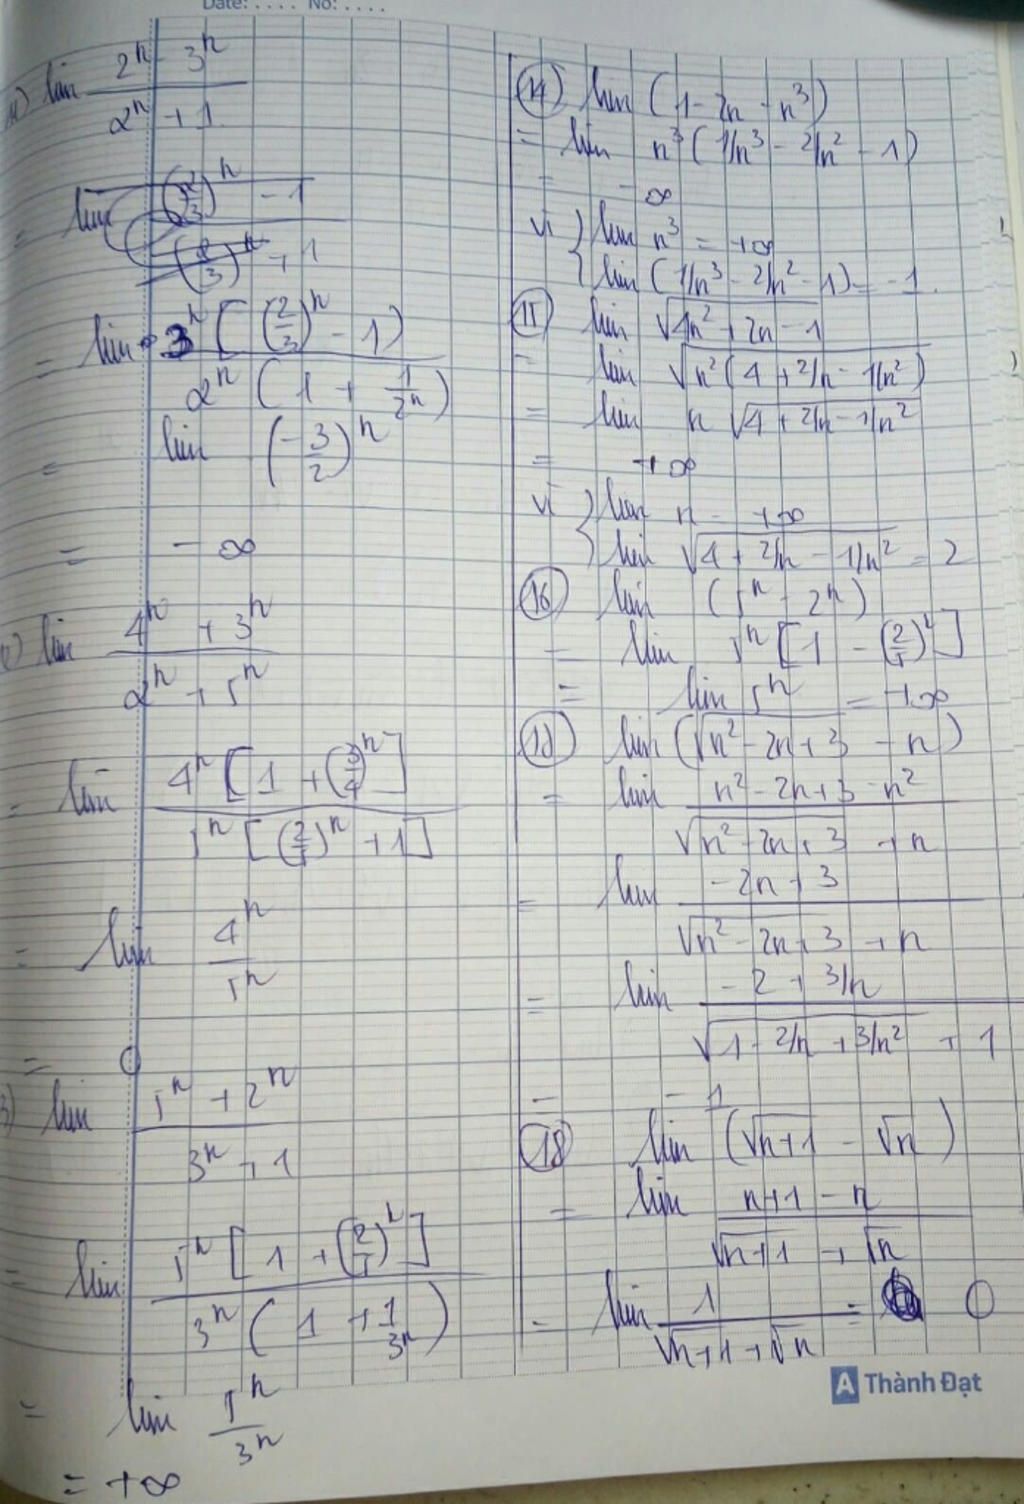 Date: .... No: ....
11) lim (2^n - 3^n)/(2^n + 1)
= lim
= lim 3^n [(2/3)^n - 1] / 2^n (1 + 1/2^n)
= lim (-3/2)^n
= -∞
lim (4^n + 3^n)/(2^n + 5^n)
= lim 4^n [1 + (3/4)^n] / 5^n [(2/5)^n + 1]
= lim 4^n/5^n
= 0
3) lim (5^n + 2^n)/(3^n + 1)
= lim 5^n [1 + (2/5)^n] / 3^n (1 + 1/3^n)
= lim 5^n/3^n
= +∞
(14) lim (1 - 2n - n^3)
= lim n^3 (1/n^3 - 2/n^2 - 1)
= -∞
vì { lim n^3 = +∞
lim (1/n^3 - 2/n^2 - 1) = -1.
(15) lim √(4n^2 + 2n - 1)
= lim √(n^2 (4 + 2/n - 1/n^2))
= lim n √(4 + 2/n - 1/n^2)
= +∞
vì { lim n = +∞
lim √(4 + 2/n - 1/n^2) = 2
(16) lim (5^n - 2^n)
= lim 5^n [1 - (2/5)^n]
= lim 5^n = +∞
lim (√(n^2 - 2n + 3) - n)
= lim (n^2 - 2n + 3 - n^2)/(√(n^2 - 2n + 3) + n)
= lim (-2n + 3)/(√(n^2 - 2n + 3) + n)
= lim (-2 + 3/n)/(√(1 - 2/n + 3/n^2) + 1)
= -1
(18) lim (√(n+1) - √n)
= lim (n+1 - n)/(√(n+1) + √n)
= lim 1/(√(n+1) + √n) = 0
A Thành Đạt